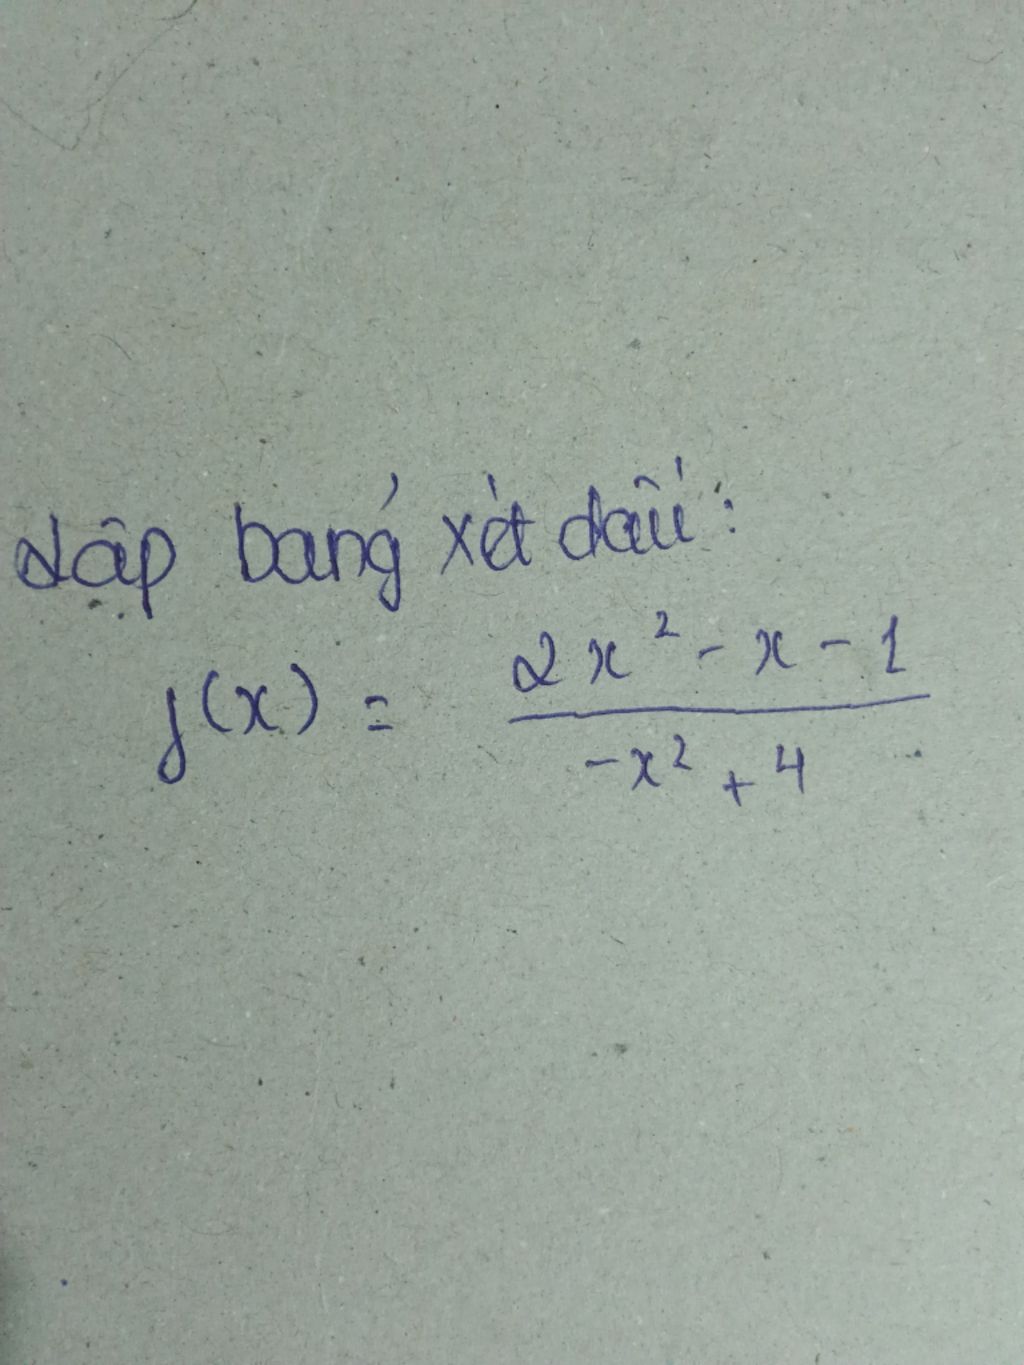 Lập bảng xét dấu:
f(x) = (2x² - x - 1) / (-x² + 4)